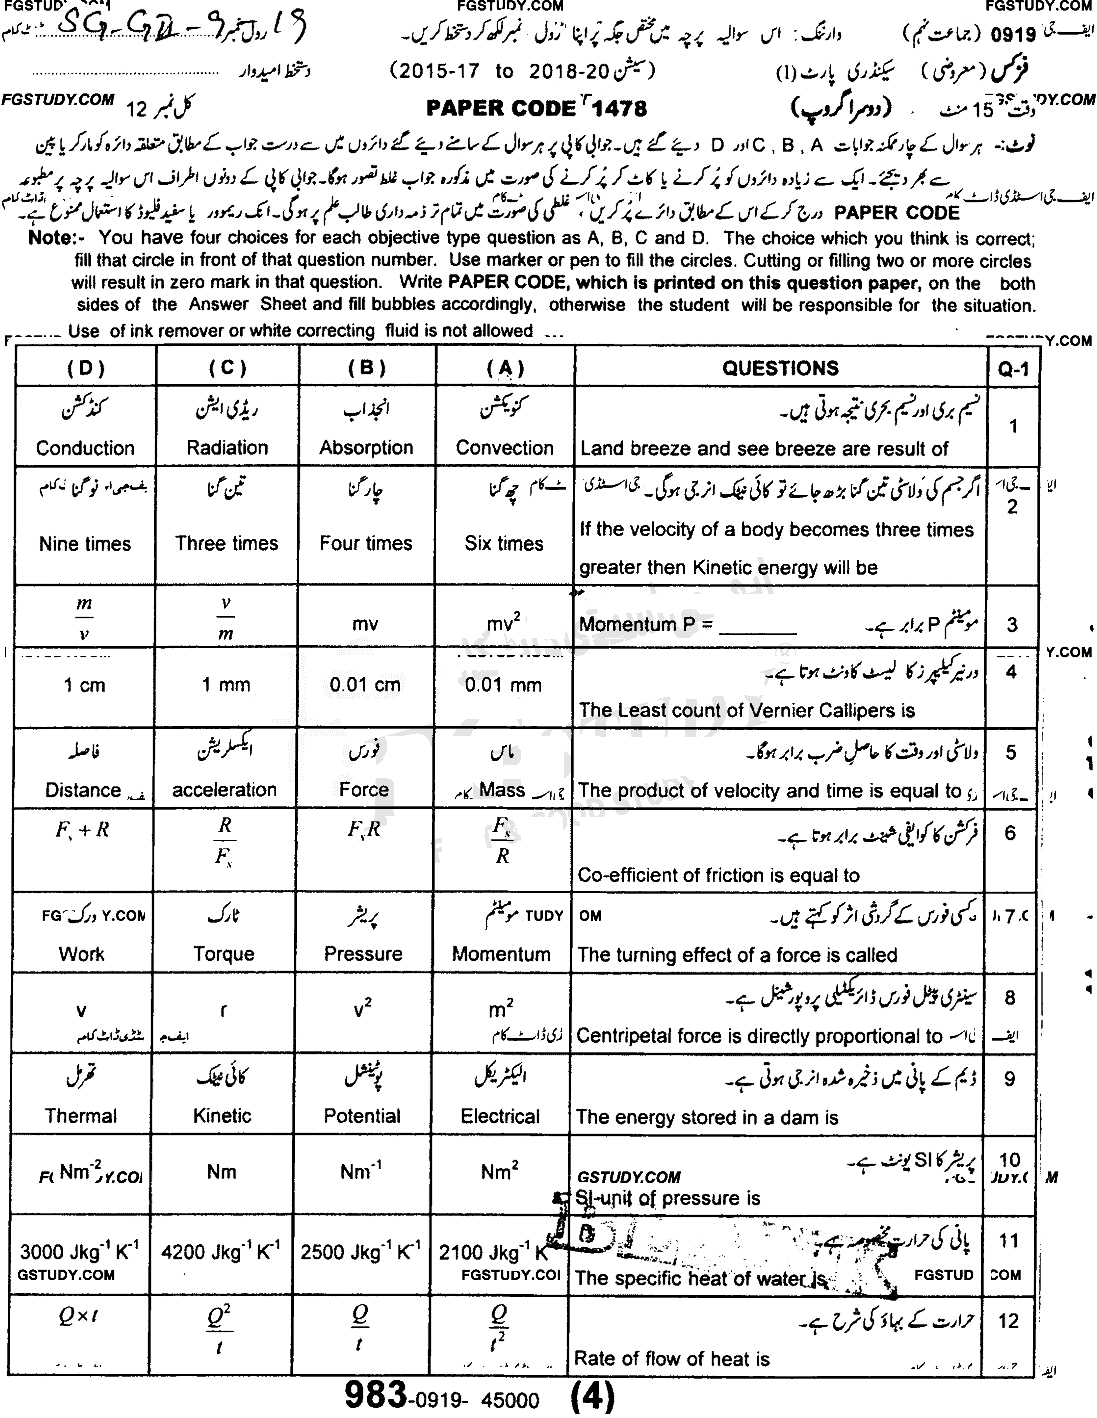 FGSTUDY.COM FGSTUDY.COM
SG-GD-9-19
رول نمبر
وارننگ: اس سوالیہ پرچہ میں مختص جگہ پر اپنا رول نمبر لکھ کر دستخط کریں۔
0919 (جماعت نہم)
دستخط امیدوار
(2015-17 to 2018-20 سیشن)
فزکس (معروضی) سیکنڈری پارٹ (I)
FGSTUDY.COM
کل نمبر 12
PAPER CODE 1478
(دوسرا گروپ)
وقت 15 منٹ
نوٹ:- ہر سوال کے چار ممکنہ جوابات A ، B ، C اور D دیئے گئے ہیں۔ جوابی کاپی پر ہر سوال کے سامنے دیئے گئے دائروں میں سے درست جواب کے مطابق متعلقہ دائرہ کو مارکر یا پین
سے بھر دیجئے۔ ایک سے زیادہ دائروں کو پُر کرنے یا کاٹ کر پُر کرنے کی صورت میں مذکورہ جواب غلط تصور ہوگا۔ جوابی کاپی کے دونوں اطراف اس سوالیہ پرچہ پر مطبوعہ
PAPER CODE درج کر کے اس کے مطابق دائرے پُر کریں، غلطی کی صورت میں تمام تر ذمہ داری طالب علم پر ہوگی۔ انک ریموور یا سفید فلیوڈ کا استعمال ممنوع ہے۔
Note:- You have four choices for each objective type question as A, B, C and D. The choice which you think is correct;
fill that circle in front of that question number. Use marker or pen to fill the circles. Cutting or filling two or more circles
will result in zero mark in that question. Write PAPER CODE, which is printed on this question paper, on the both
sides of the Answer Sheet and fill bubbles accordingly, otherwise the student will be responsible for the situation.
Use of ink remover or white correcting fluid is not allowed
(D) (C) (B) (A) QUESTIONS Q-1
کنڈکشن ریڈی ایشن انجذاب کنویکشن نسیم بری اور نسیم بحری نتیجہ ہوتی ہیں۔ 1
Conduction Radiation Absorption Convection Land breeze and see breeze are result of
نو گنا تین گنا چار گنا چھ گنا اگر جسم کی ولاسٹی تین گنا بڑھ جائے تو کائی نیٹک انرجی ہوگی۔ 2
Nine times Three times Four times Six times If the velocity of a body becomes three times
greater then Kinetic energy will be
m/v v/m mv mv² Momentum P = ________ مومینٹم P برابر ہے۔ 3
ورنیر کیلیپرز کا لیسٹ کاونٹ ہوتا ہے۔ 4
1 cm 1 mm 0.01 cm 0.01 mm The Least count of Vernier Callipers is
فاصلہ ایکسلریشن فورس ماس ولاسٹی اور وقت کا حاصل ضرب برابر ہوگا۔ 5
Distance acceleration Force Mass The product of velocity and time is equal to
Fₛ + R R/Fₛ FₛR Fₛ/R فرکشن کا کوایفی شینٹ برابر ہوتا ہے۔ 6
Co-efficient of friction is equal to
ورک ٹارک پریشر مومینٹم کسی فورس کے گردشی اثر کو کہتے ہیں۔ 7
Work Torque Pressure Momentum The turning effect of a force is called
سینٹری پیٹل فورس ڈائریکٹلی پروپورشینل ہے۔ 8
v r v² m² Centripetal force is directly proportional to
تھرمل کائی نیٹک پوٹینشل الیکٹریکل ڈیم کے پانی میں ذخیرہ شدہ انرجی ہوتی ہے۔ 9
Thermal Kinetic Potential Electrical The energy stored in a dam is
پریشر کا SI یونٹ ہے۔ 10
Nm⁻² Nm Nm⁻¹ Nm² SI-unit of pressure is
پانی کی حرارت مخصوصہ ہے۔ 11
3000 Jkg⁻¹ K⁻¹ 4200 Jkg⁻¹ K⁻¹ 2500 Jkg⁻¹ K⁻¹ 2100 Jkg⁻¹ K The specific heat of water is
Q×t Q²/t Q/t Q/t² حرارت کے بہاؤ کی شرح ہے۔ 12
Rate of flow of heat is
983-0919- 45000 (4)